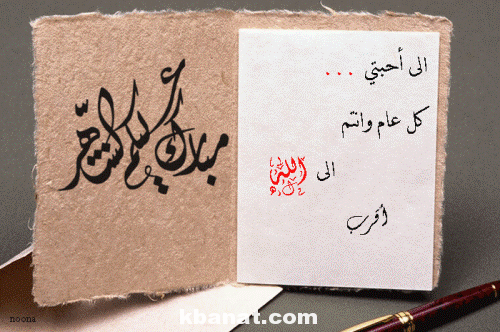 مبارك عليكم الشهر
الى أحبتي ...
كل عام وانتم
الى الله
أقرب
noona
kbanat.com